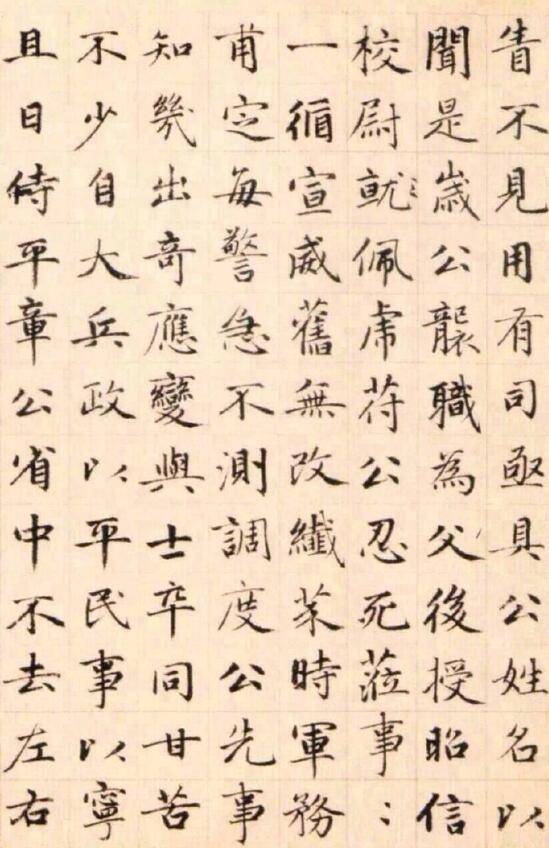 眚不見用有司亟具公姓名以
聞是歲公襲職為父後授昭信
校尉就〻佩虎符公忍死蒞事〻
一循宣威舊無改纖芥時軍務
甫定每警急不測調度公先事
知幾出奇應變與士卒同甘苦
不少自大兵政以平民事以寧
且日侍平章公省中不去左右